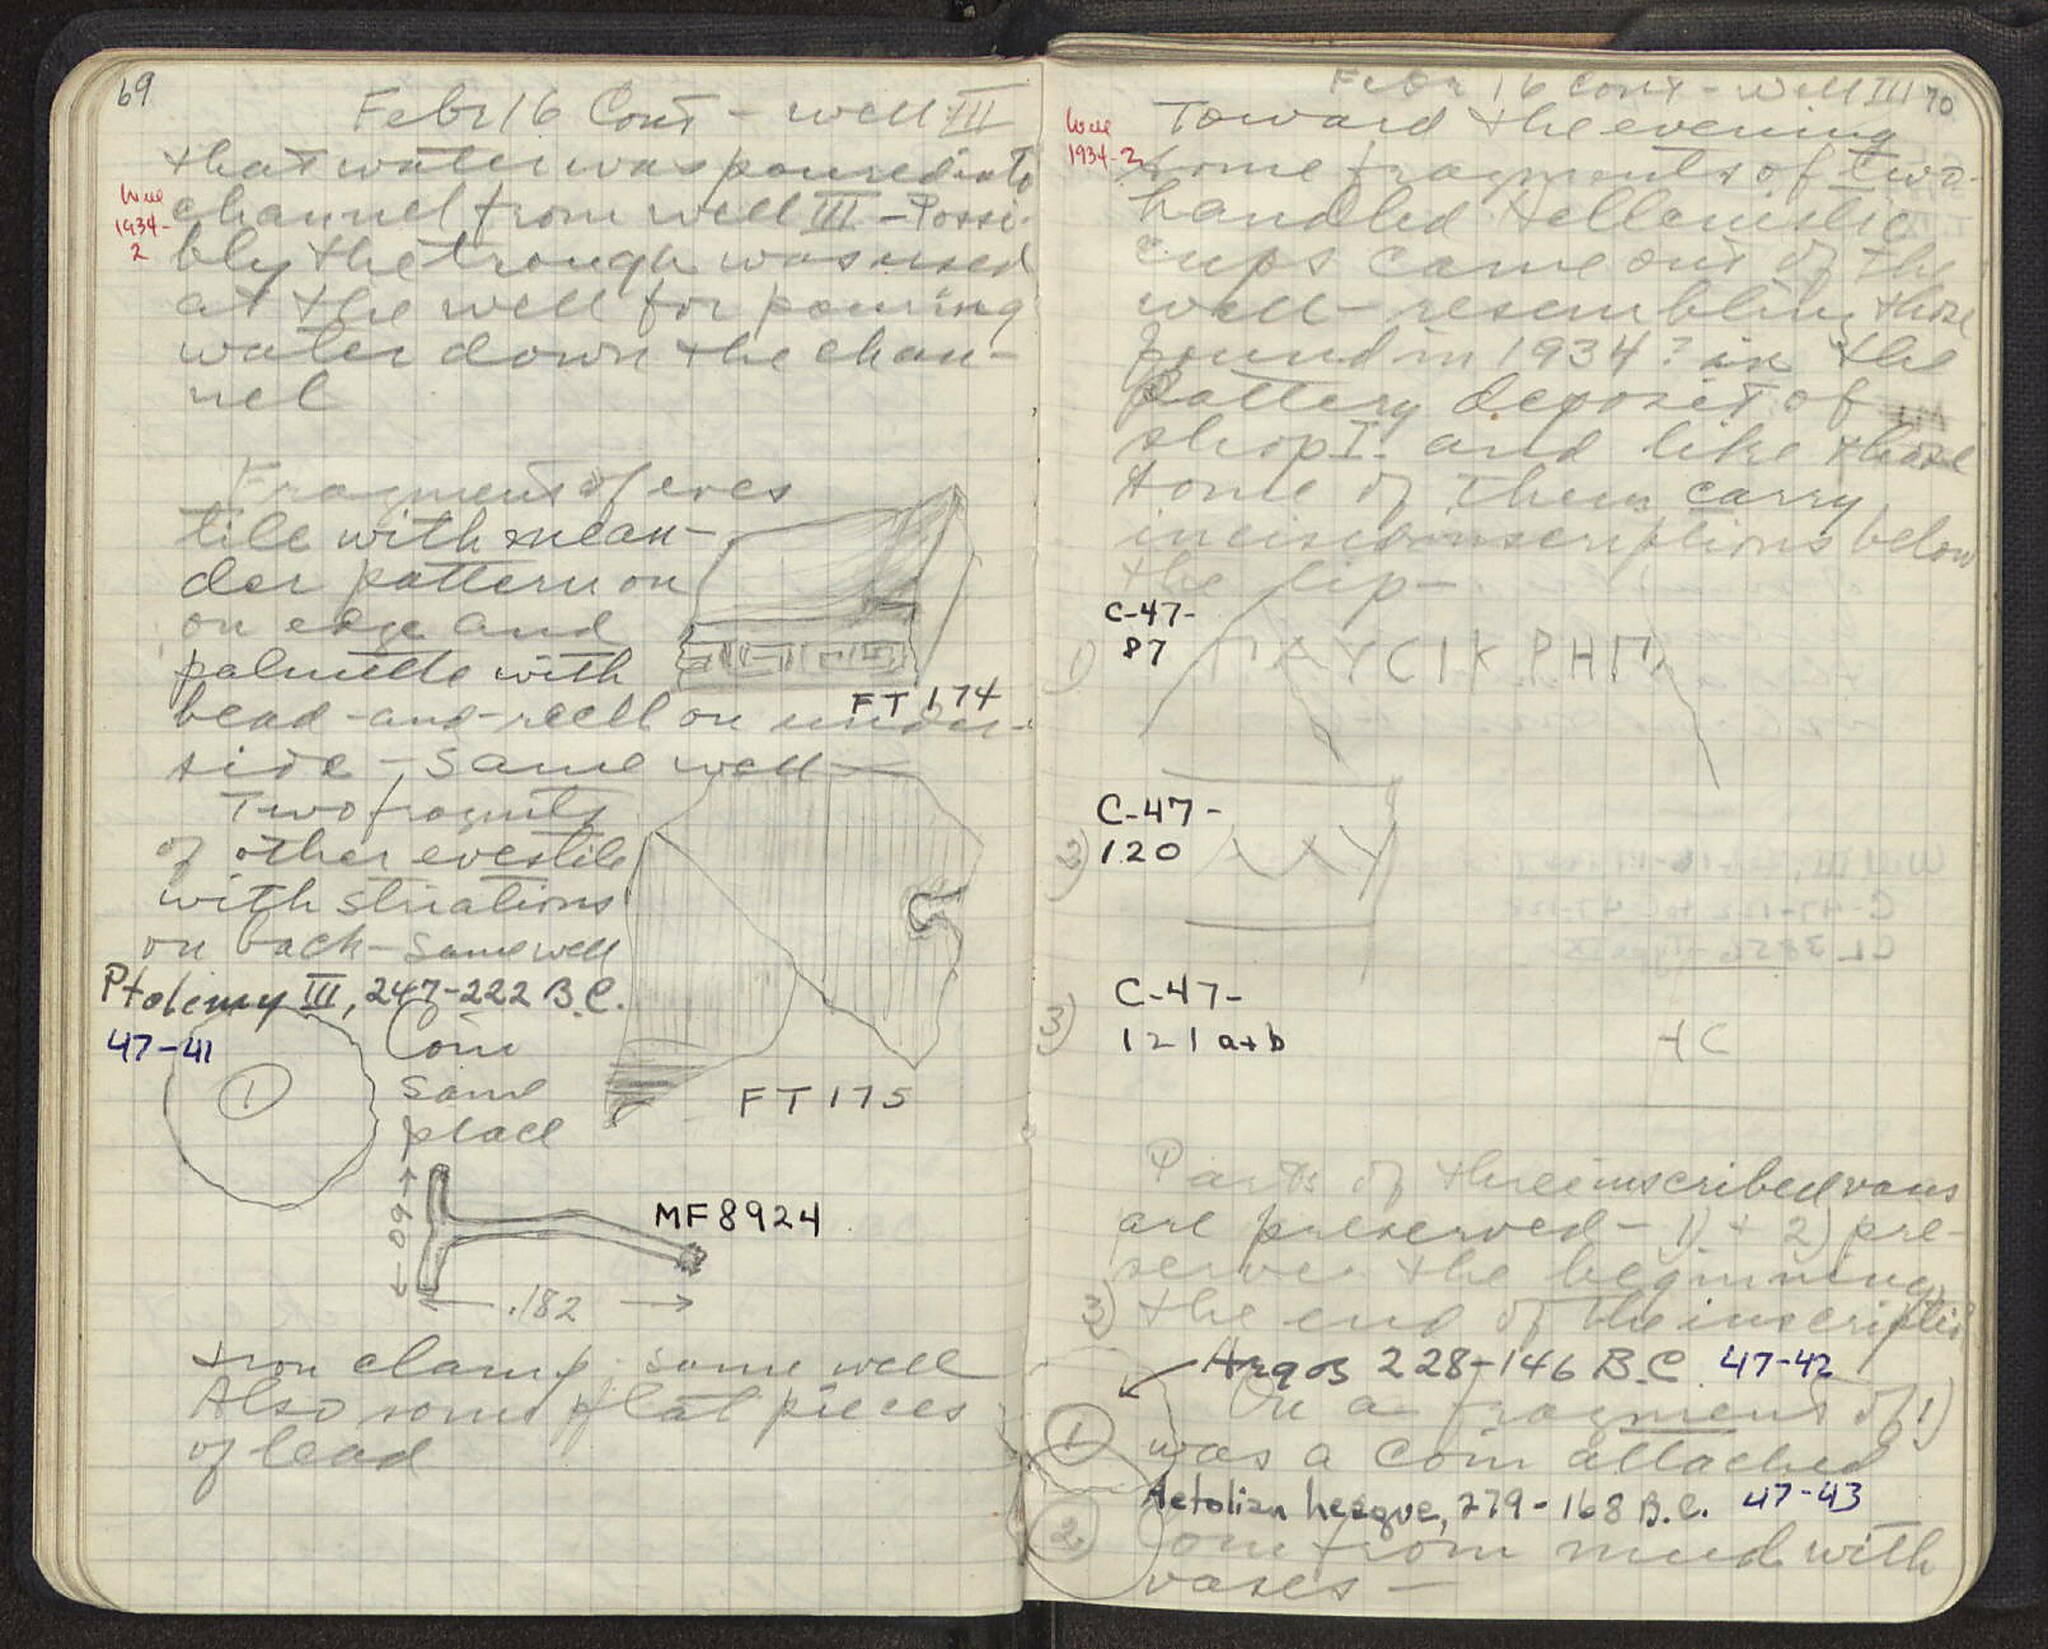 69
Febr 16 Cont - well III
that water was poured into
channel from well III - Possi-
bly the trough was used
at the well for pouring
water down the chan-
nel
1934-
2
Fragment of eves
tile with mean-
der pattern on
on edge and
palmette with
bead-and-reell on under-
side - same well
FT 174
Two fragmts
of other evestile
with striations
on back - same well
FT 175
Ptolemy III, 247-222 B.C.
47-41
1
Coin
same
place
.09
MF 8924
.182
Iron clamp same well
Also some flat pieces
of lead
Febr 16 Cont - Well III 70
1934-2
Toward the evening
some fragments of two-
handled Hellenistic
cups came out of the
well - resembling those
found in 1934? in the
Pottery deposit of
shop I - and like those
some of them carry
inscriptions below
the lip -
C-47-
87
1)
ΠΑΥCΙΚΡΗΠ
C-47-
120
2)
C-47-
121 a+b
3)
Ι C
Parts of three inscribed vases
are preserved - 1) + 2) pre-
serve the beginning
3) the end of the inscriptio
Argos 228-146 B.C. 47-42
On a fragment of 1)
1
was a coin attached
Aetolian League, 279-168 B.C. 47-43
2
Coin from mud with
vases -